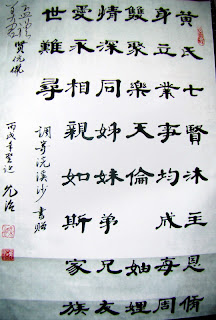 黃氏七賢沐主恩脩
身立業事均成每周
雙聚樂天倫妯娌
情深同姊妹弟兄友
愛永相親如斯家族
世難尋
調寄浣溪沙 書貽
賢伉儷